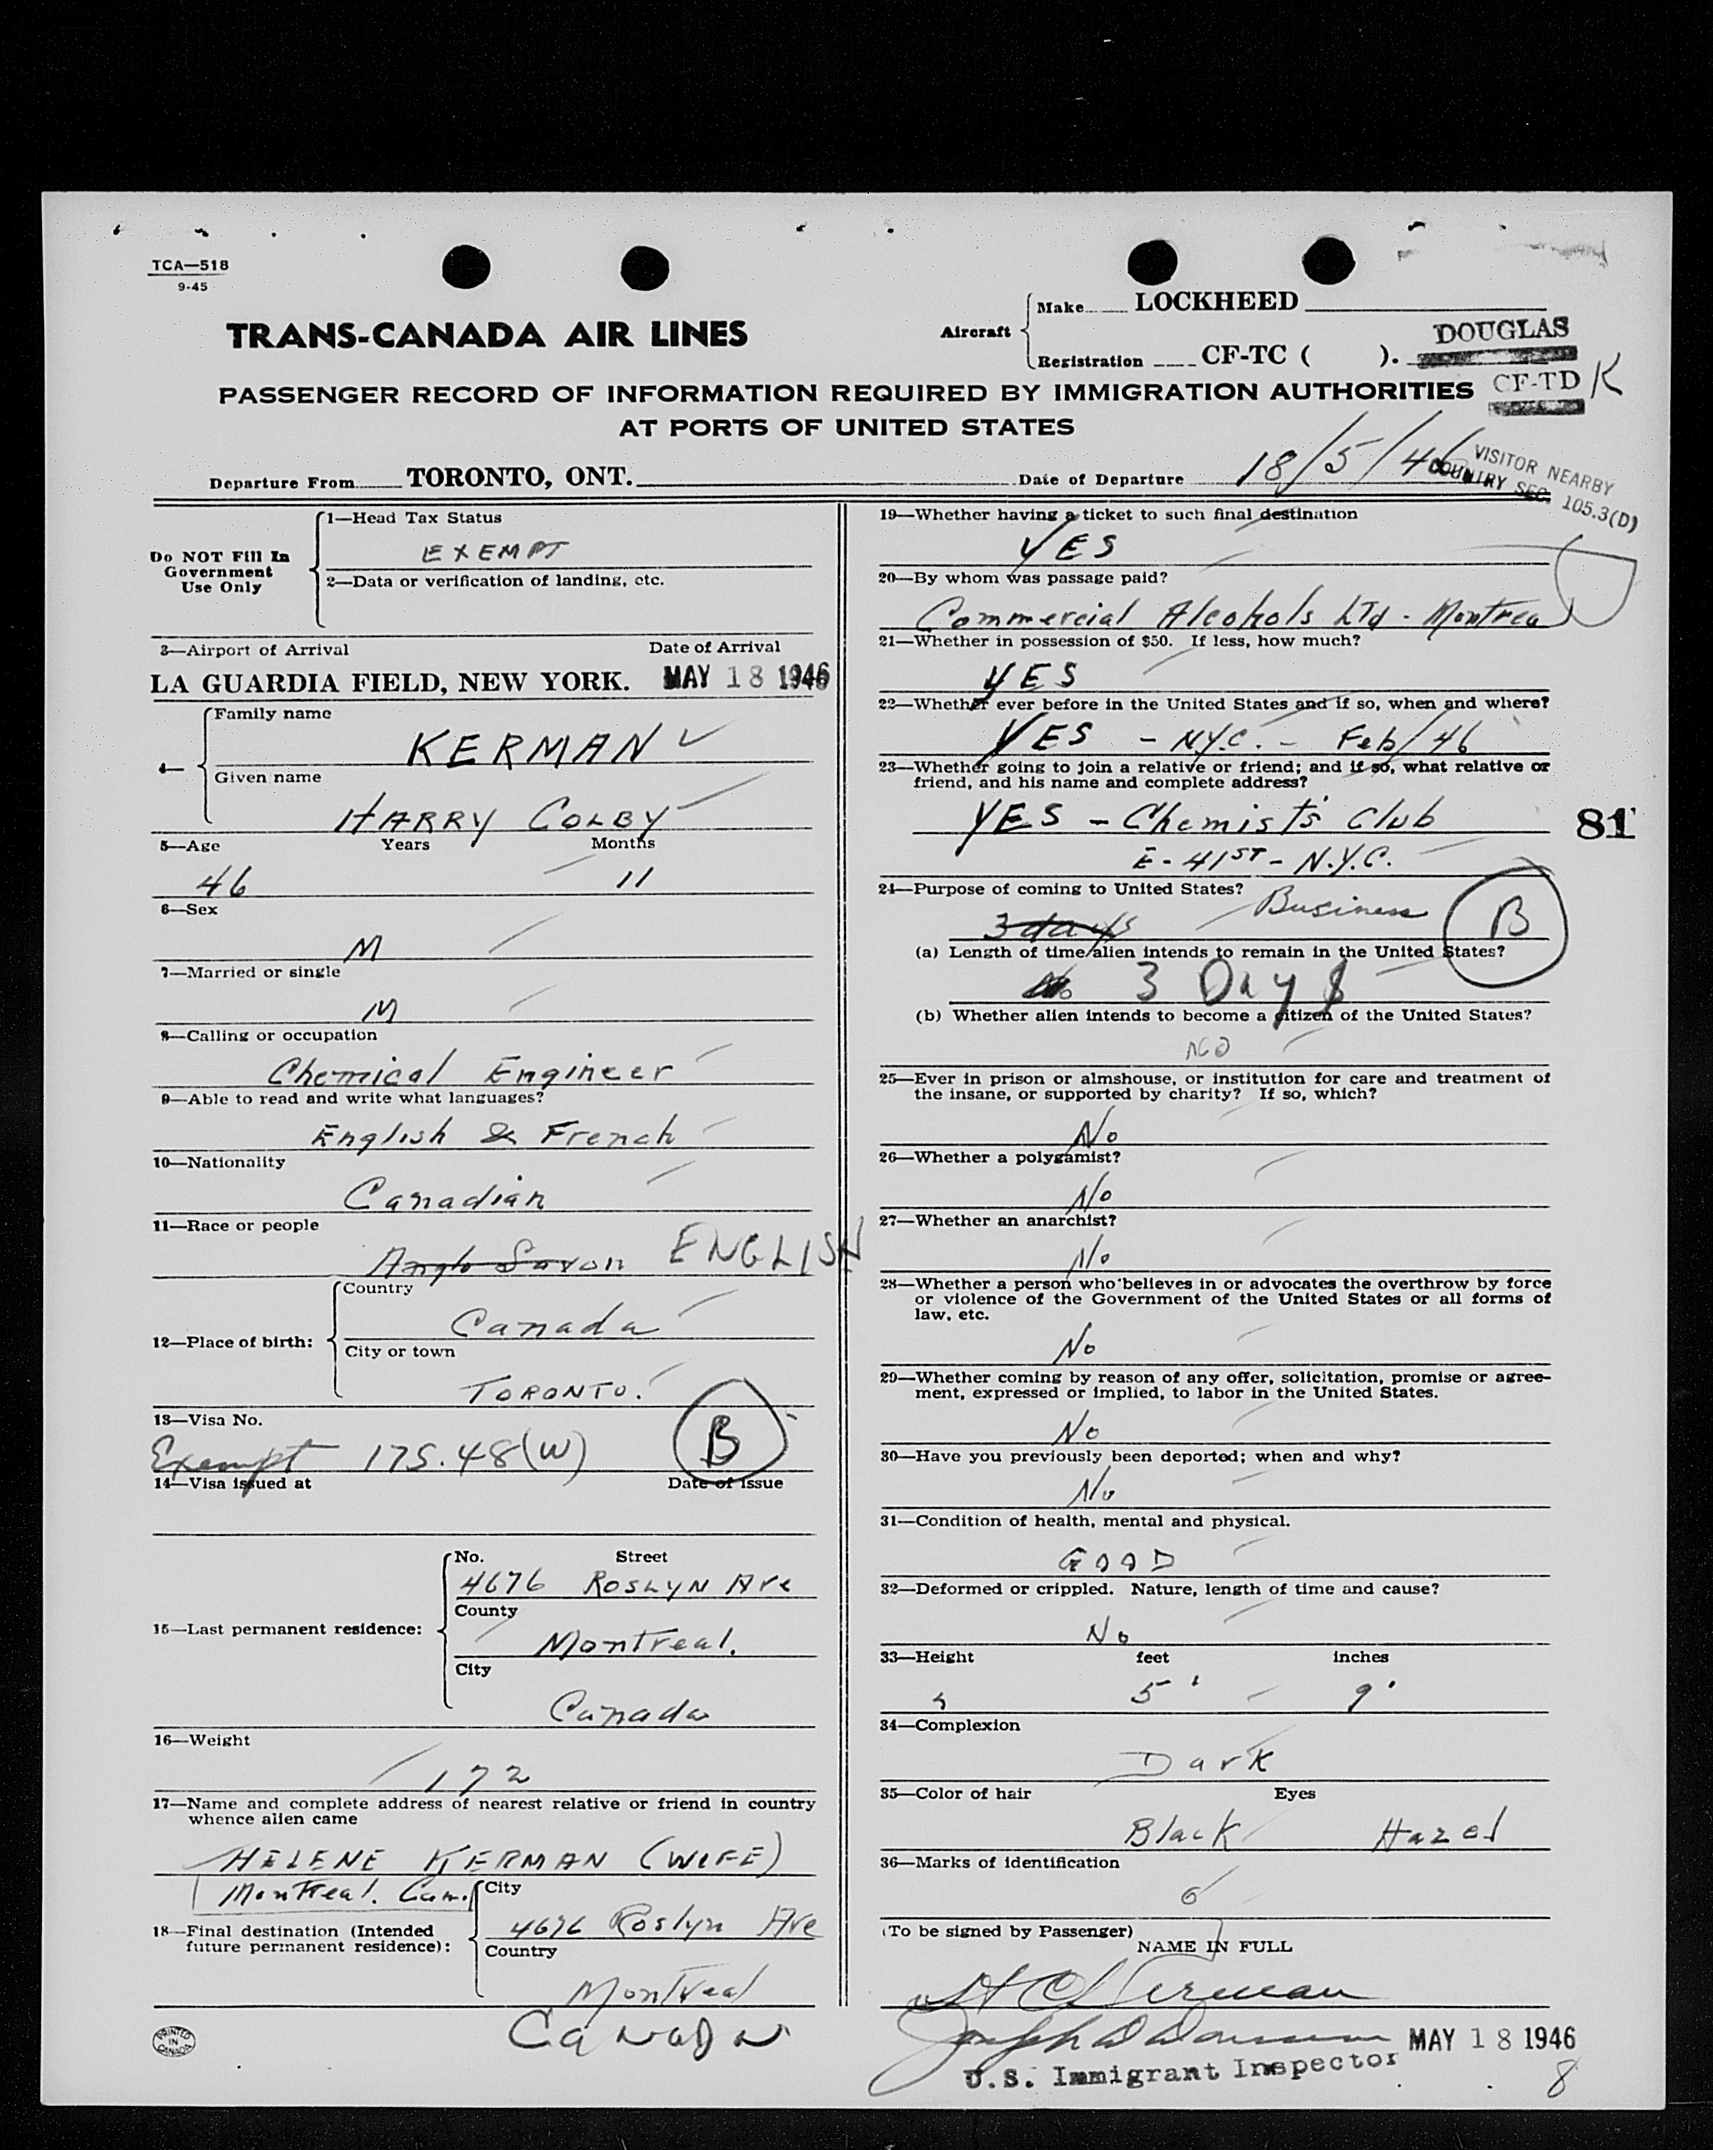 TCA—518
9-45
TRANS-CANADA AIR LINES
Aircraft
Make LOCKHEED
DOUGLAS
Registration CF-TC ( ).
CF-TD K
PASSENGER RECORD OF INFORMATION REQUIRED BY IMMIGRATION AUTHORITIES
AT PORTS OF UNITED STATES
Departure From TORONTO, ONT.
Date of Departure 18/5/46
VISITOR NEARBY
COUNTRY SEC. 105.3(D)
Do NOT Fill In
Government
Use Only
1—Head Tax Status
EXEMPT
2—Data or verification of landing, etc.
3—Airport of Arrival Date of Arrival
LA GUARDIA FIELD, NEW YORK. MAY 18 1946
4—
Family name
KERMAN
Given name
HARRY COLBY
5—Age Years Months
46 11
6—Sex
M
7—Married or single
M
8—Calling or occupation
Chemical Engineer
9—Able to read and write what languages?
English & French
10—Nationality
Canadian
11—Race or people
Anglo Saxon ENGLISH
12—Place of birth:
Country
Canada
City or town
TORONTO.
13—Visa No.
Exempt 175.48(W) B
14—Visa issued at Date of issue
15—Last permanent residence:
No. Street
4676 ROSLYN AVE
County
Montreal.
City
Canada
16—Weight
172
17—Name and complete address of nearest relative or friend in country
whence alien came
HELENE KERMAN (WIFE)
Montreal. Can.
18—Final destination (Intended
future permanent residence):
City
4676 Roslyn Ave
Country
Montreal
Canada
PRINTED
IN
CANADA
19—Whether having a ticket to such final destination
YES
20—By whom was passage paid?
Commercial Alcohols LTd - Montreal
21—Whether in possession of $50. If less, how much?
YES
22—Whether ever before in the United States and if so, when and where?
YES - N.Y.C. - Feb/46
23—Whether going to join a relative or friend; and if so, what relative or
friend, and his name and complete address?
YES - Chemist's Club
81
E - 41ST - N.Y.C.
24—Purpose of coming to United States?
3 days Business B
(a) Length of time alien intends to remain in the United States?
3 Days
(b) Whether alien intends to become a citizen of the United States?
NO
25—Ever in prison or almshouse, or institution for care and treatment of
the insane, or supported by charity? If so, which?
No
26—Whether a polygamist?
No
27—Whether an anarchist?
No
28—Whether a person who believes in or advocates the overthrow by force
or violence of the Government of the United States or all forms of
law, etc.
No
29—Whether coming by reason of any offer, solicitation, promise or agree-
ment, expressed or implied, to labor in the United States.
No
30—Have you previously been deported; when and why?
No
31—Condition of health, mental and physical.
GOOD
32—Deformed or crippled. Nature, length of time and cause?
No
33—Height feet inches
5' 9"
34—Complexion
Dark
35—Color of hair Eyes
Black Hazel
36—Marks of identification
(To be signed by Passenger)
NAME IN FULL
H C Kerman
MAY 18 1946
U.S. Immigrant Inspector
8